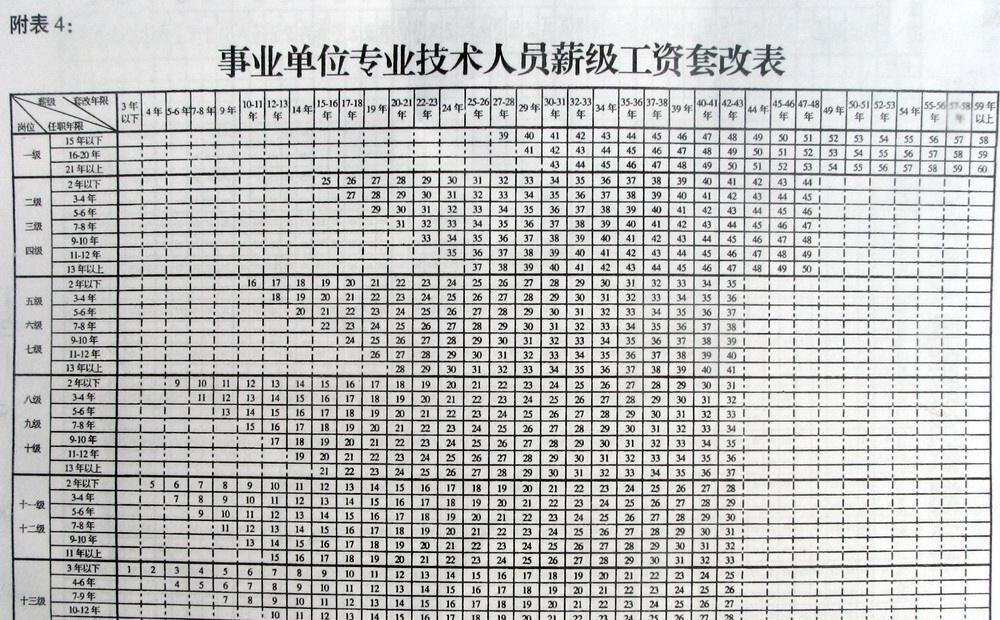 附表 4：
事业单位专业技术人员薪级工资套改表
薪级 套改年限 岗位 任职年限 3年以下 4年 5-6年 7-8年 9年 10-11年 12-13年 14年 15-16年 17-18年 19年 20-21年 22-23年 24年 25-26年 27-28年 29年 30-31年 32-33年 34年 35-36年 37-38年 39年 40-41年 42-43年 44年 45-46年 47-48年 49年 50-51年 52-53年 54年 55-56年 57-58年 59年以上
一级
15年以下 39 40 41 42 43 44 45 46 47 48 49 50 51 52 53 54 55 56 57 58
16-20年 41 42 43 44 45 46 47 48 49 50 51 52 53 54 55 56 57 58 59
21年以上 43 44 45 46 47 48 49 50 51 52 53 54 55 56 57 58 59 60
二级
三级
四级
2年以下 25 26 27 28 29 30 31 32 33 34 35 36 37 38 39 40 41 42 43 44
3-4年 27 28 29 30 31 32 33 34 35 36 37 38 39 40 41 42 43 44 45
5-6年 29 30 31 32 33 34 35 36 37 38 39 40 41 42 43 44 45 46
7-8年 31 32 33 34 35 36 37 38 39 40 41 42 43 44 45 46 47
9-10年 33 34 35 36 37 38 39 40 41 42 43 44 45 46 47 48
11-12年 35 36 37 38 39 40 41 42 43 44 45 46 47 48 49
13年以上 37 38 39 40 41 42 43 44 45 46 47 48 49 50
五级
六级
七级
2年以下 16 17 18 19 20 21 22 23 24 25 26 27 28 29 30 31 32 33 34 35
3-4年 18 19 20 21 22 23 24 25 26 27 28 29 30 31 32 33 34 35 36
5-6年 20 21 22 23 24 25 26 27 28 29 30 31 32 33 34 35 36 37
7-8年 22 23 24 25 26 27 28 29 30 31 32 33 34 35 36 37 38
9-10年 24 25 26 27 28 29 30 31 32 33 34 35 36 37 38 39
11-12年 26 27 28 29 30 31 32 33 34 35 36 37 38 39 40
13年以上 28 29 30 31 32 33 34 35 36 37 38 39 40 41
八级
九级
十级
2年以下 9 10 11 12 13 14 15 16 17 18 19 20 21 22 23 24 25 26 27 28 29 30 31
3-4年 11 12 13 14 15 16 17 18 19 20 21 22 23 24 25 26 27 28 29 30 31 32
5-6年 13 14 15 16 17 18 19 20 21 22 23 24 25 26 27 28 29 30 31 32 33
7-8年 15 16 17 18 19 20 21 22 23 24 25 26 27 28 29 30 31 32 33 34
9-10年 17 18 19 20 21 22 23 24 25 26 27 28 29 30 31 32 33 34 35
11-12年 19 20 21 22 23 24 25 26 27 28 29 30 31 32 33 34 35 36
13年以上 21 22 23 24 25 26 27 28 29 30 31 32 33 34 35 36 37
十一级
十二级
2年以下 5 6 7 8 9 10 11 12 13 14 15 16 17 18 19 20 21 22 23 24 25 26 27 28
3-4年 7 8 9 10 11 12 13 14 15 16 17 18 19 20 21 22 23 24 25 26 27 28 29
5-6年 9 10 11 12 13 14 15 16 17 18 19 20 21 22 23 24 25 26 27 28 29 30
7-8年 11 12 13 14 15 16 17 18 19 20 21 22 23 24 25 26 27 28 29 30 31
9-10年 13 14 15 16 17 18 19 20 21 22 23 24 25 26 27 28 29 30 31 32
11年以上 15 16 17 18 19 20 21 22 23 24 25 26 27 28 29 30 31 32 33
十三级
3年以下 1 2 3 4 5 6 7 8 9 10 11 12 13 14 15 16 17 18 19 20 21 22 23 24 25
4-6年 4 5 6 7 8 9 10 11 12 13 14 15 16 17 18 19 20 21 22 23 24 25 26
7-9年 7 8 9 10 11 12 13 14 15 16 17 18 19 20 21 22 23 24 25 26 27
10-12年 10 11 12 13 14 15 16 17 18 19 20 21 22 23 24 25 26 27 28